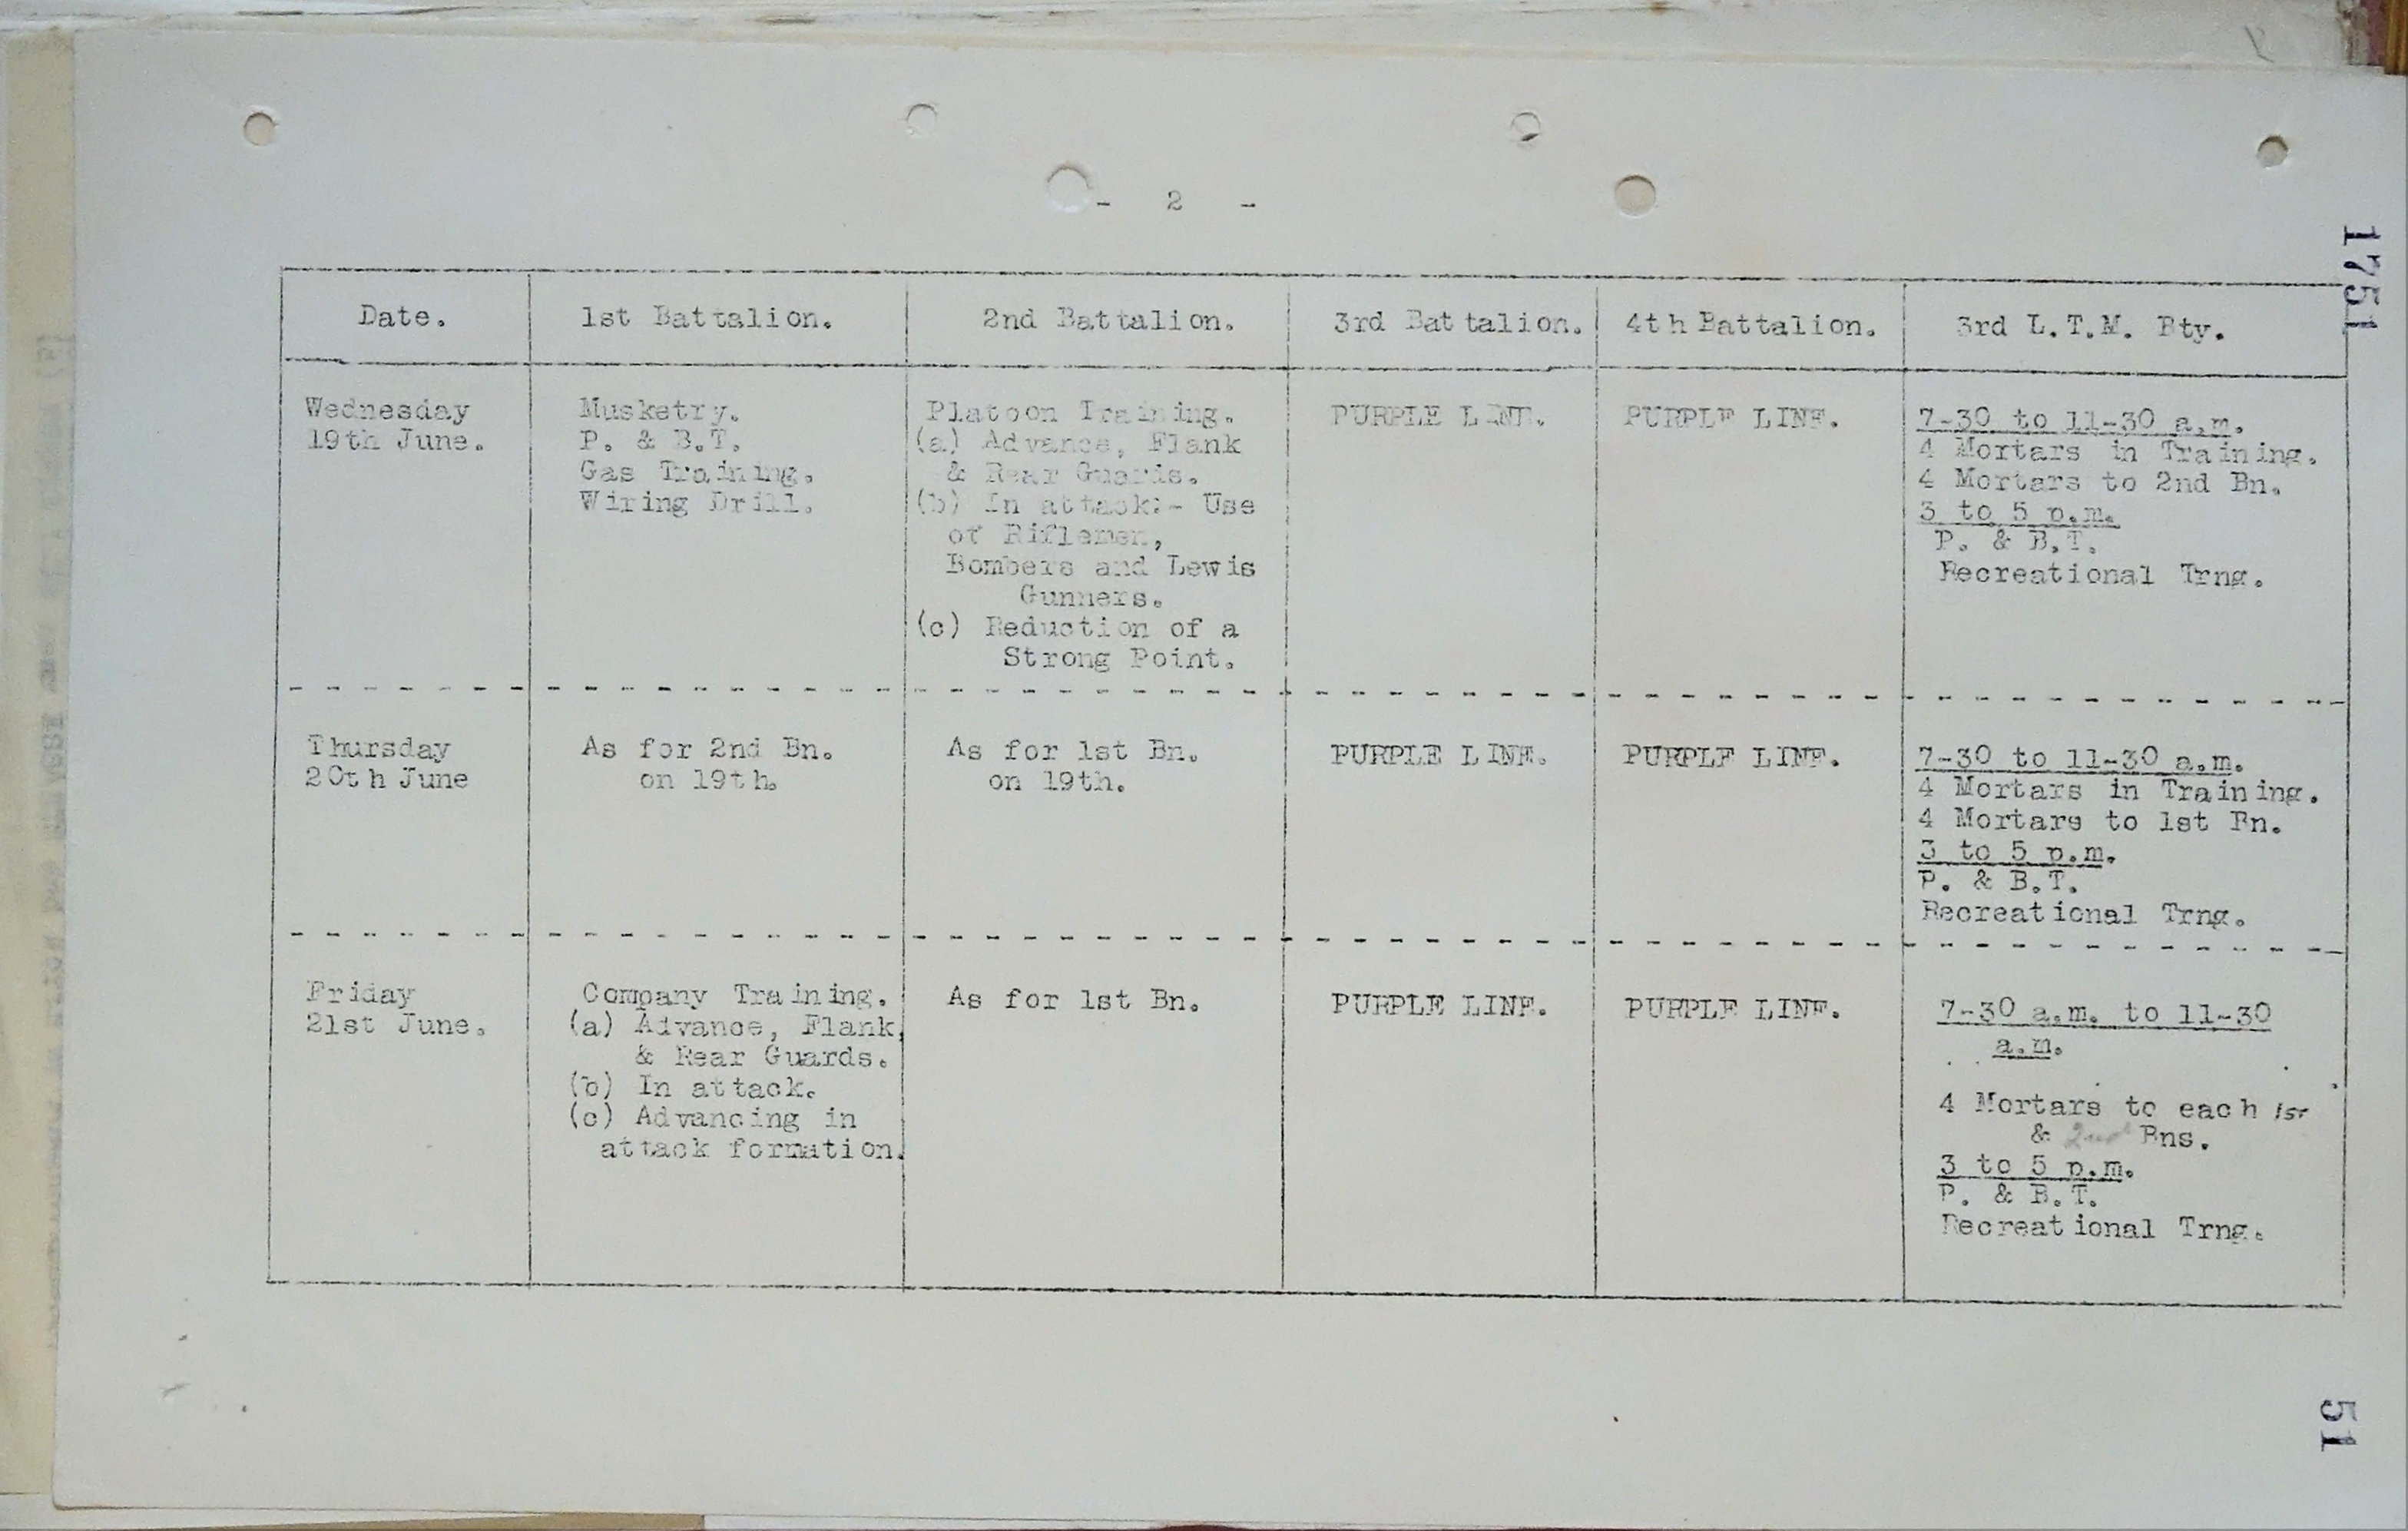 - 2 -
1751
Date. 1st Battalion. 2nd Battalion. 3rd Battalion. 4th Battalion. 3rd L.T.M. Bty.
Wednesday
19th June.
Musketry.
P. & B.T.
Gas Training.
Wiring Drill.
Platoon Training.
(a) Advance, Flank
& Rear Guards.
(b) In attack:- Use
of Riflemen,
Bombers and Lewis
Gunners.
(c) Reduction of a
Strong Point.
PURPLE LINE.
PURPLE LINE.
7-30 to 11-30 a.m.
4 Mortars in Training.
4 Mortars to 2nd Bn.
3 to 5 p.m.
P. & B.T.
Recreational Trng.
Thursday
20th June
As for 2nd Bn.
on 19th.
As for 1st Bn.
on 19th.
PURPLE LINE.
PURPLE LINE.
7-30 to 11-30 a.m.
4 Mortars in Training.
4 Mortars to 1st Bn.
3 to 5 p.m.
P. & B.T.
Recreational Trng.
Friday
21st June.
Company Training.
(a) Advance, Flank,
& Rear Guards.
(b) In attack.
(c) Advancing in
attack formation.
As for 1st Bn.
PURPLE LINE.
PURPLE LINE.
7-30 a.m. to 11-30
a.m.
4 Mortars to each 1st
& 2nd Bns.
3 to 5 p.m.
P. & B.T.
Recreational Trng.
51